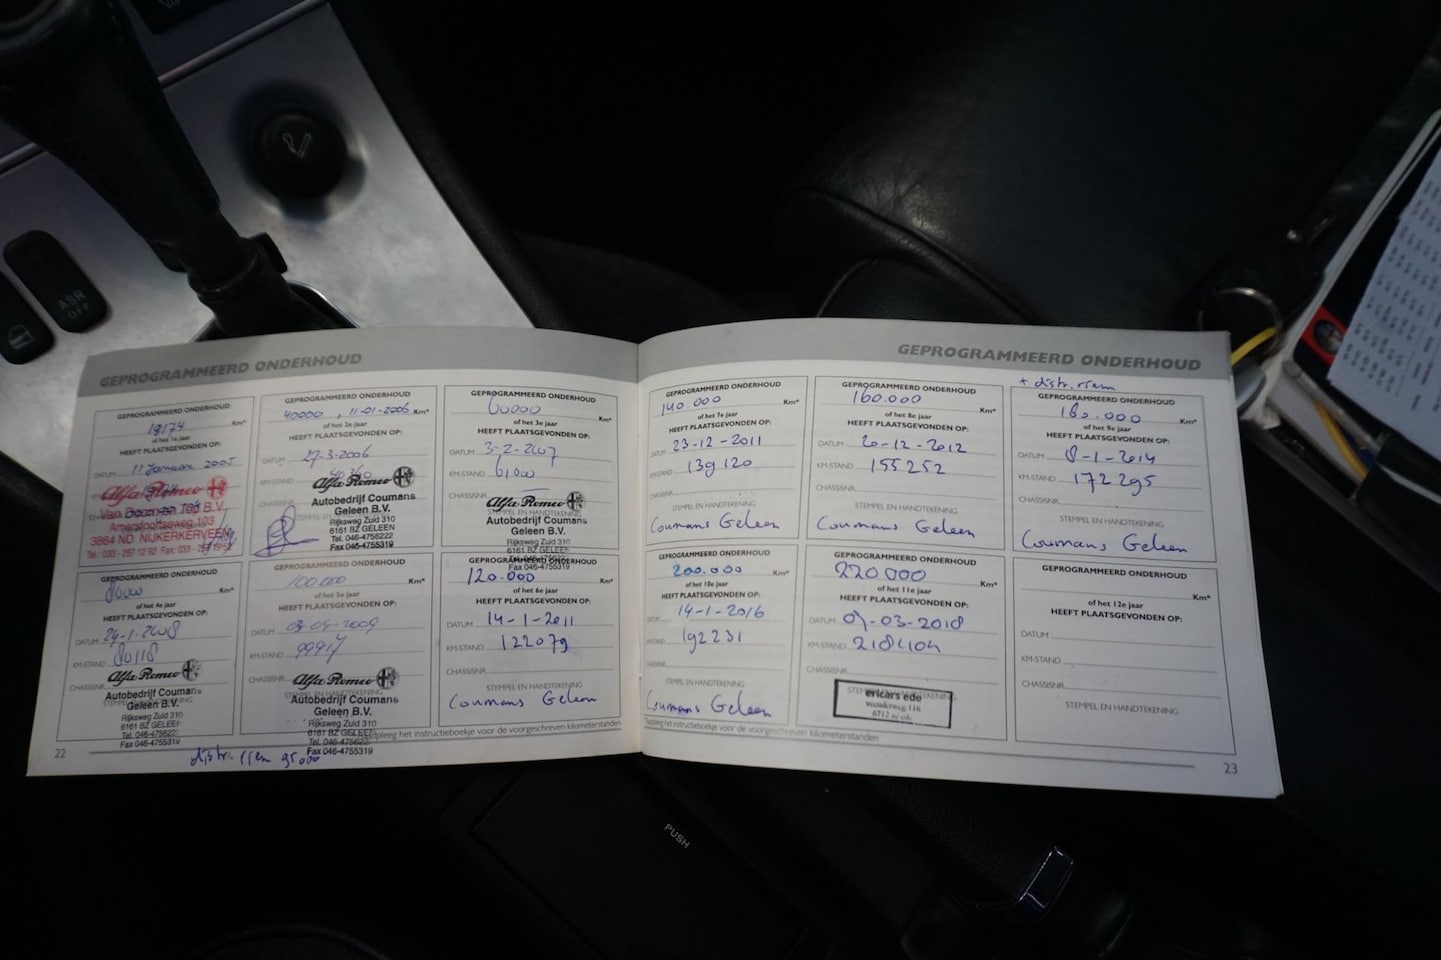 ASR
OFF
GEPROGRAMMEERD ONDERHOUD
GEPROGRAMMEERD ONDERHOUD
18174
of het 1e jaar
HEEFT PLAATSGEVONDEN OP:
DATUM 11 Januari 2005
Alfa Romeo
Van Doorn
B.V.
Amersfoortseweg 103
3864 ND NIJKERKERVEEN
Tel.: 033 - 257 12 92 Fax: 033 - 257 19 52
GEPROGRAMMEERD ONDERHOUD
40000 , 11-01-2006 Km*
of het 2e jaar
HEEFT PLAATSGEVONDEN OP:
DATUM 27-3-2006
KM-STAND 40360
Alfa Romeo
Autobedrijf Coumans
Geleen B.V.
Rijksweg Zuid 310
6161 BZ GELEEN
Tel. 046-4756222
Fax 046-4755319
GEPROGRAMMEERD ONDERHOUD
60000 Km*
of het 3e jaar
HEEFT PLAATSGEVONDEN OP:
DATUM 3-2-2007
KM-STAND 61000
CHASSISNR.
Alfa Romeo
Autobedrijf Coumans
Geleen B.V.
Rijksweg Zuid 310
6161 BZ GELEEN
Fax 046-4755319
GEPROGRAMMEERD ONDERHOUD
80000 Km*
of het 4e jaar
HEEFT PLAATSGEVONDEN OP:
DATUM 24-1-2008
KM-STAND 80118
CHASSISNR.
Alfa Romeo
Autobedrijf Coumans
Geleen B.V.
Rijksweg Zuid 310
6161 BZ GELEEN
Fax 046-4755319
GEPROGRAMMEERD ONDERHOUD
100.000 Km*
of het 5e jaar
HEEFT PLAATSGEVONDEN OP:
DATUM 03-04-2009
KM-STAND 99917
CHASSISNR.
Alfa Romeo
STEMPEL EN HANDTEKENING
Autobedrijf Coumans
Geleen B.V.
Rijksweg Zuid 310
6161 BZ GELEEN
Fax 046-4755319
GEPROGRAMMEERD ONDERHOUD
120.000 Km*
of het 6e jaar
HEEFT PLAATSGEVONDEN OP:
DATUM 14-1-2011
KM-STAND 122079
CHASSISNR.
STEMPEL EN HANDTEKENING
Coumans Geleen
Raadpleeg het instructieboekje voor de voorgeschreven kilometerstanden
22
distr. riem 95000
GEPROGRAMMEERD ONDERHOUD
GEPROGRAMMEERD ONDERHOUD
140.000 Km*
of het 7e jaar
HEEFT PLAATSGEVONDEN OP:
DATUM 23-12-2011
KM-STAND 139120
CHASSISNR.
STEMPEL EN HANDTEKENING
Coumans Geleen
GEPROGRAMMEERD ONDERHOUD
160.000 Km*
of het 8e jaar
HEEFT PLAATSGEVONDEN OP:
DATUM 20-12-2012
KM-STAND 155252
CHASSISNR.
STEMPEL EN HANDTEKENING
Coumans Geleen
+ distr. riem
GEPROGRAMMEERD ONDERHOUD
180.000 Km*
of het 9e jaar
HEEFT PLAATSGEVONDEN OP:
DATUM 8-1-2014
KM-STAND 172295
CHASSISNR.
STEMPEL EN HANDTEKENING
Coumans Geleen
GEPROGRAMMEERD ONDERHOUD
200.000 Km*
of het 10e jaar
HEEFT PLAATSGEVONDEN OP:
DATUM 14-1-2016
KM-STAND 192231
CHASSISNR.
STEMPEL EN HANDTEKENING
Coumans Geleen
GEPROGRAMMEERD ONDERHOUD
220000 Km*
of het 11e jaar
HEEFT PLAATSGEVONDEN OP:
DATUM 09-03-2018
KM-STAND 218404
CHASSISNR.
STEMPEL EN HANDTEKENING
ericars ede
GEPROGRAMMEERD ONDERHOUD
Km*
of het 12e jaar
HEEFT PLAATSGEVONDEN OP:
DATUM
KM-STAND
CHASSISNR.
STEMPEL EN HANDTEKENING
Raadpleeg het instructieboekje voor de voorgeschreven kilometerstanden
23
PUSH